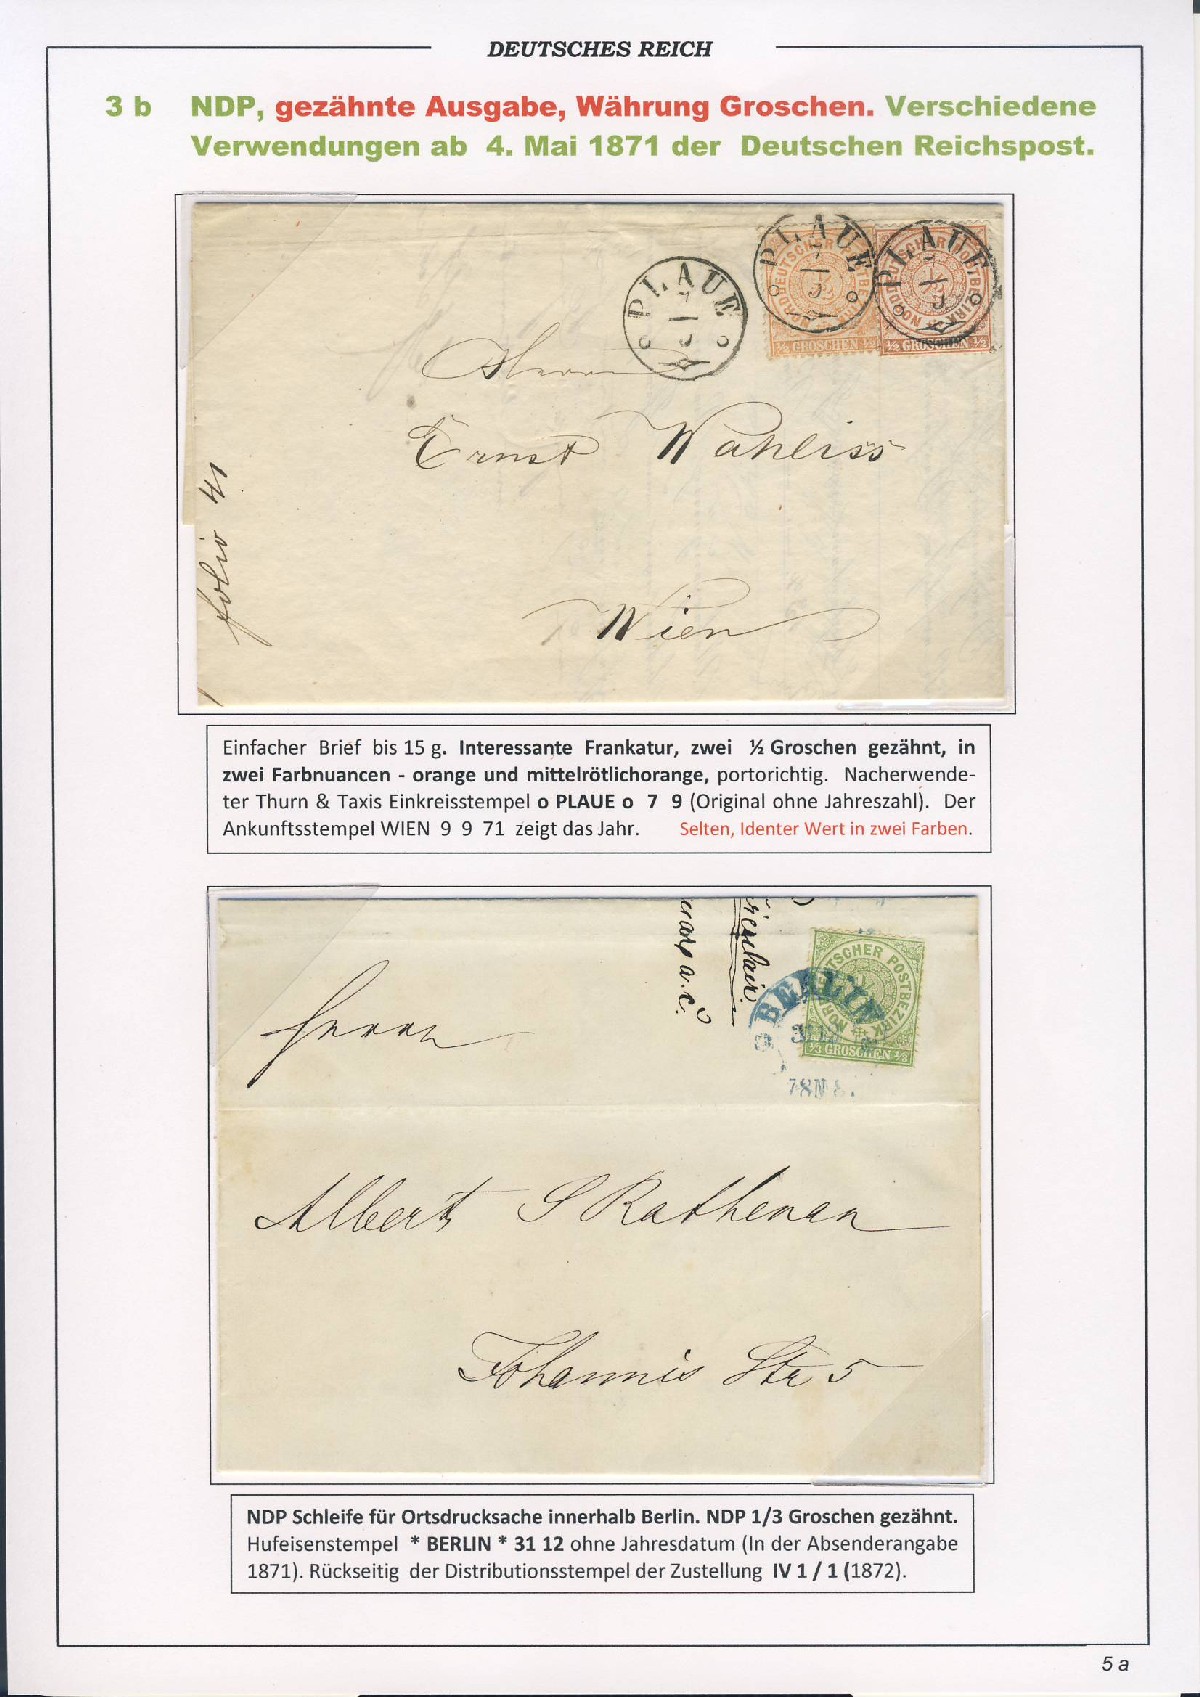 DEUTSCHES REICH
3 b NDP, gezähnte Ausgabe, Währung Groschen. Verschiedene
Verwendungen ab 4. Mai 1871 der Deutschen Reichspost.
PLAUE
PLAUE
PLAUE
½ GROSCHEN ½
½ GROSCHEN ½
Herrn
Ernst Wahliss
Wien
folio 41
Einfacher Brief bis 15 g. Interessante Frankatur, zwei ½ Groschen gezähnt, in
zwei Farbnuancen - orange und mittelrötlichorange, portorichtig. Nacherwende-
ter Thurn & Taxis Einkreisstempel o PLAUE o 7 9 (Original ohne Jahreszahl). Der
Ankunftsstempel WIEN 9 9 71 zeigt das Jahr. Selten, Identer Wert in zwei Farben.
a.c.
BERLIN
⅓ GROSCHEN ⅓
Herrn
Albert S Rathenau
Johannis Str 5
NDP Schleife für Ortsdrucksache innerhalb Berlin. NDP 1/3 Groschen gezähnt.
Hufeisenstempel * BERLIN * 31 12 ohne Jahresdatum (In der Absenderangabe
1871). Rückseitig der Distributionsstempel der Zustellung IV 1 / 1 (1872).
5 a